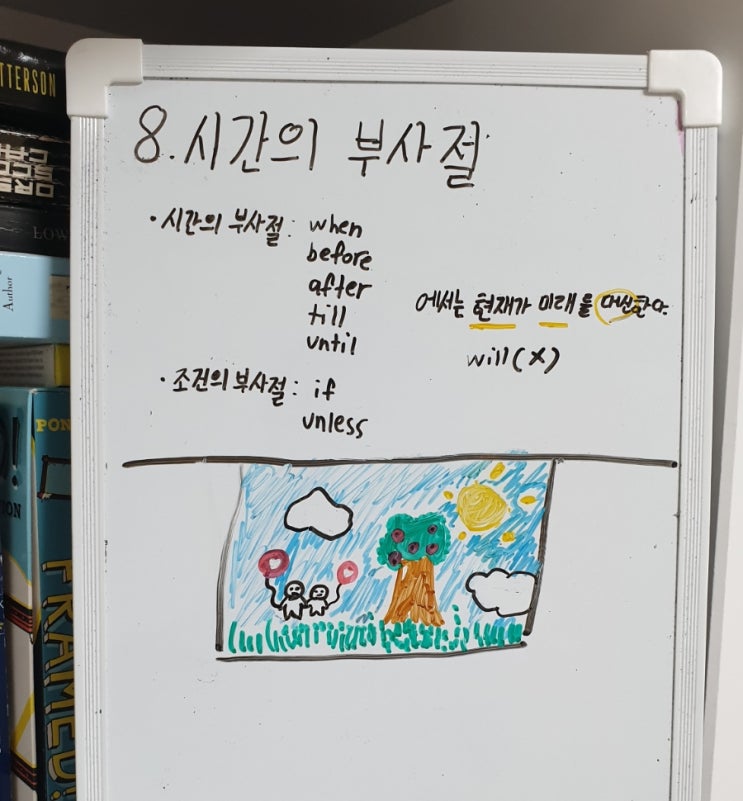 8. 시간의 부사절
· 시간의 부사절 : when
before
after
till
until
에서는 현재가 미래를 대신한다.
will (X)
· 조건의 부사절 : if
unless
TTERSON
Author
PON
FRAMED!